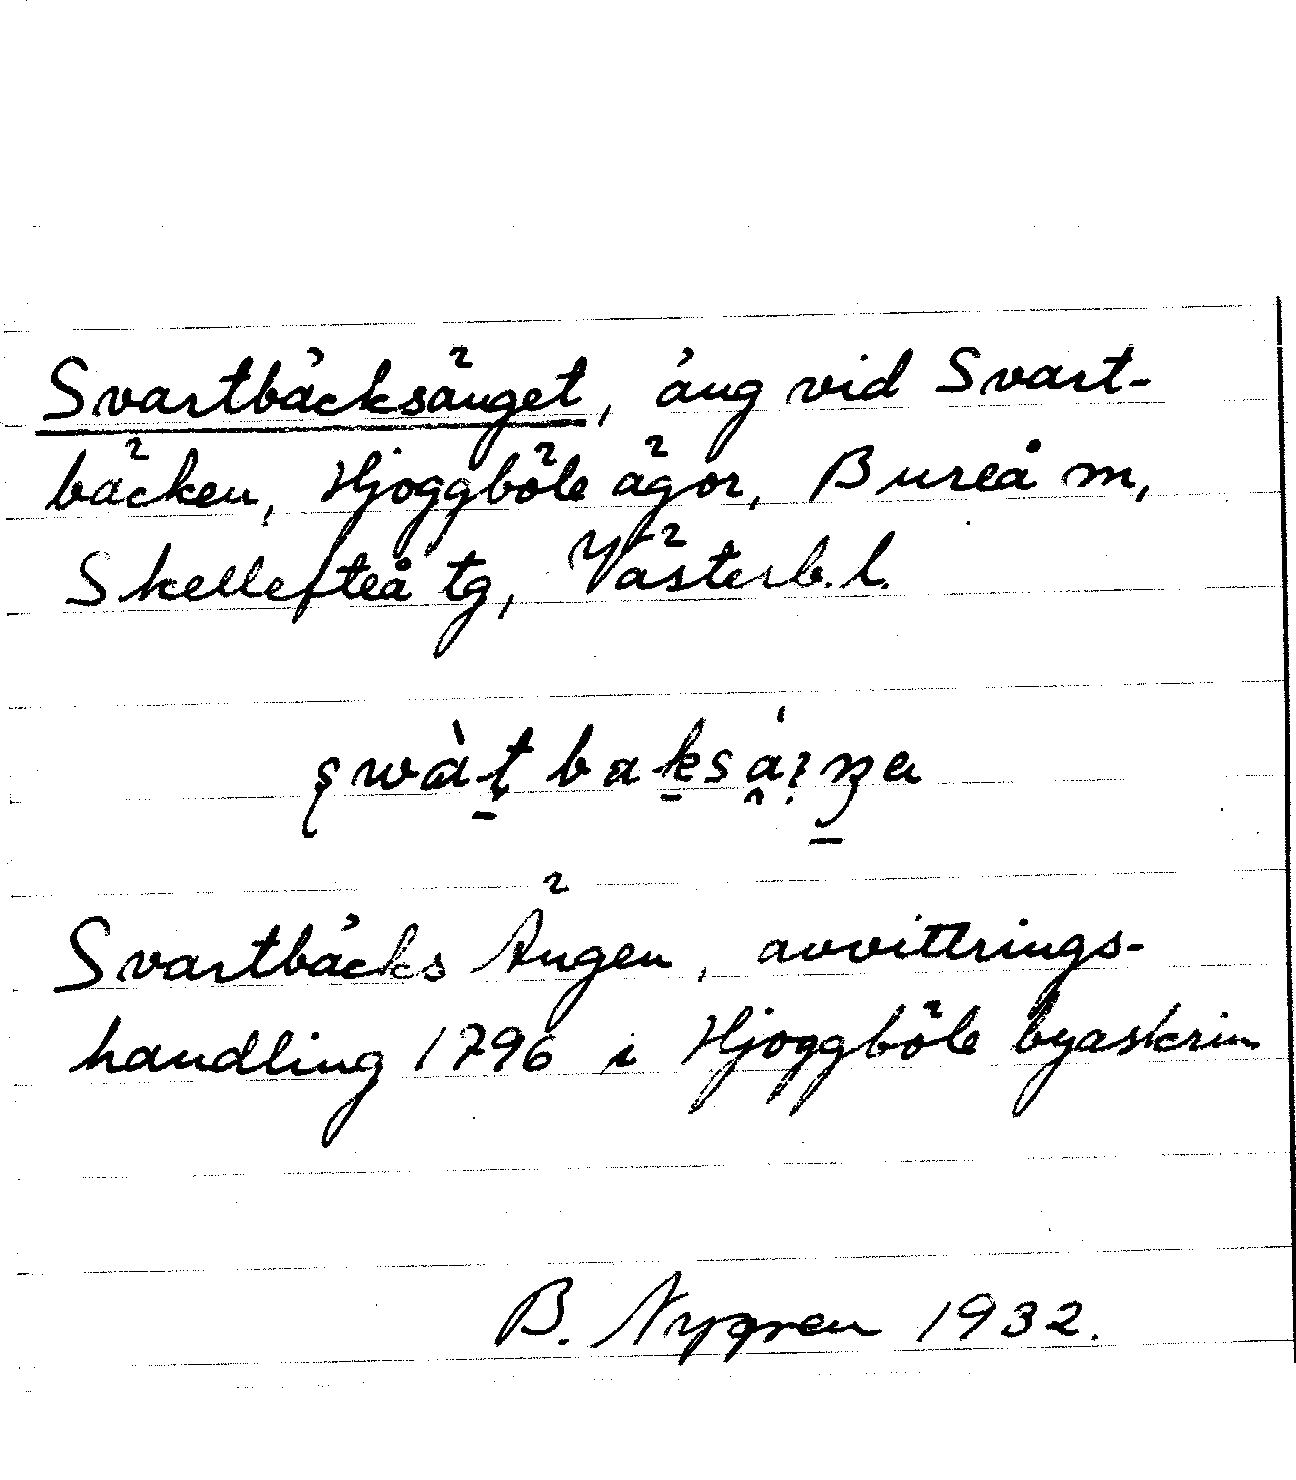 Svartbäcksänget, äng vid Svart-
bäcken, Hjoggböle ägor, Bureå m,
Skellefteå tg, Västerb. l.
Svartbäcks Ängen, avvittrings-
handling 1796 i Hjoggböle byaskrin
B. Nygren 1932.